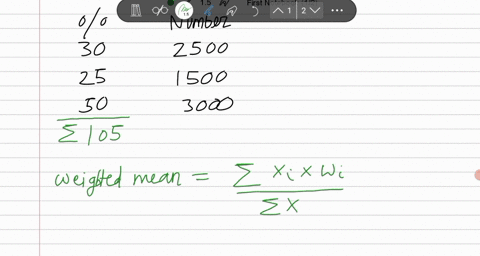 % Number
30 2500
25 1500
50 3000
Σ 105
weighted mean = Σ xi x wi
Σ X